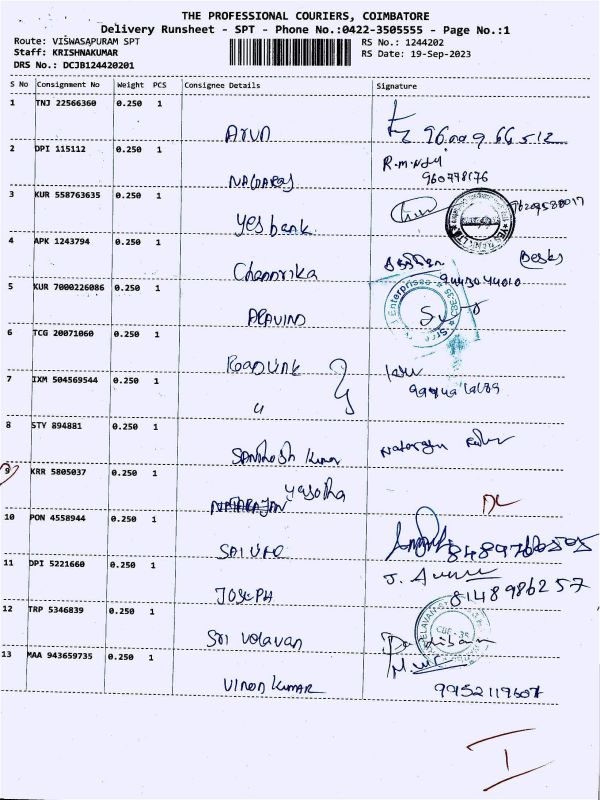 THE PROFESSIONAL COURIERS, COIMBATORE
Delivery Runsheet - SPT - Phone No.:0422-3505555 - Page No.:1
Route: VISWASAPURAM SPT RS No.: 1244202
Staff: KRISHNAKUMAR RS Date: 19-Sep-2023
DRS No.: DCJB124420201
S No Consignment No Weight PCS Consignee Details Signature
1 TNJ 22566360 0.250 1
Arun
2 DPI 115112 0.250 1 R.m.
NAGARAJ
3 KUR 558763635 0.250 1
Yes bank
4 APK 1243794 0.250 1
Chandrika
5 KUR 7000226086 0.250 1
ARAVIND
6 TCG 20071060 0.250 1
7 IXM 504569544 0.250 1
"
8 STY 894881 0.250 1
Santhosh Kumar
9 KRR 5805037 0.250 1
NATARAJAN Yasotha DL
10 PON 4558944 0.250 1
11 DPI 5221660 0.250 1 J.
JOSEPH 8148986257
12 TRP 5346839 0.250 1
Sri Velavan
13 MAA 943659735 0.250 1
Vinod Kumar 99152119607
I